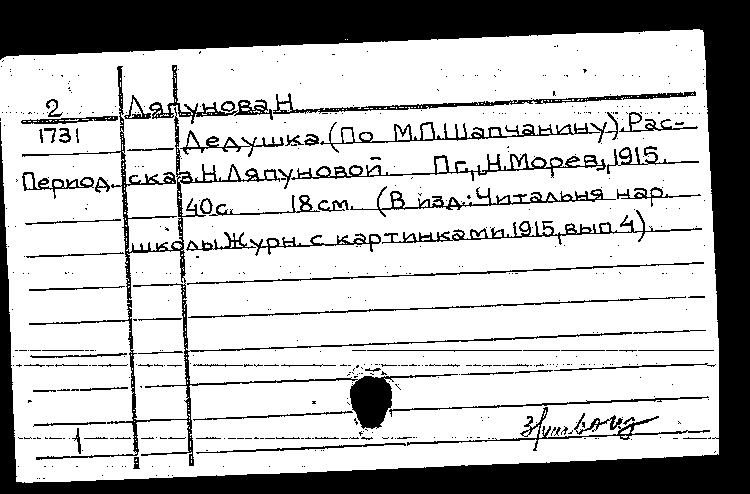 2 Ляпунова, Н
1731 Дедушка. (По М.П.Шапчанину). Рас-
Период. сказ. Н. Ляпуновой. Пг., Н. Морев, 1915.
40с. 18см. (В изд.: Читальня нар.
школы. Журн. с картинками. 1915, вып. 4).
1